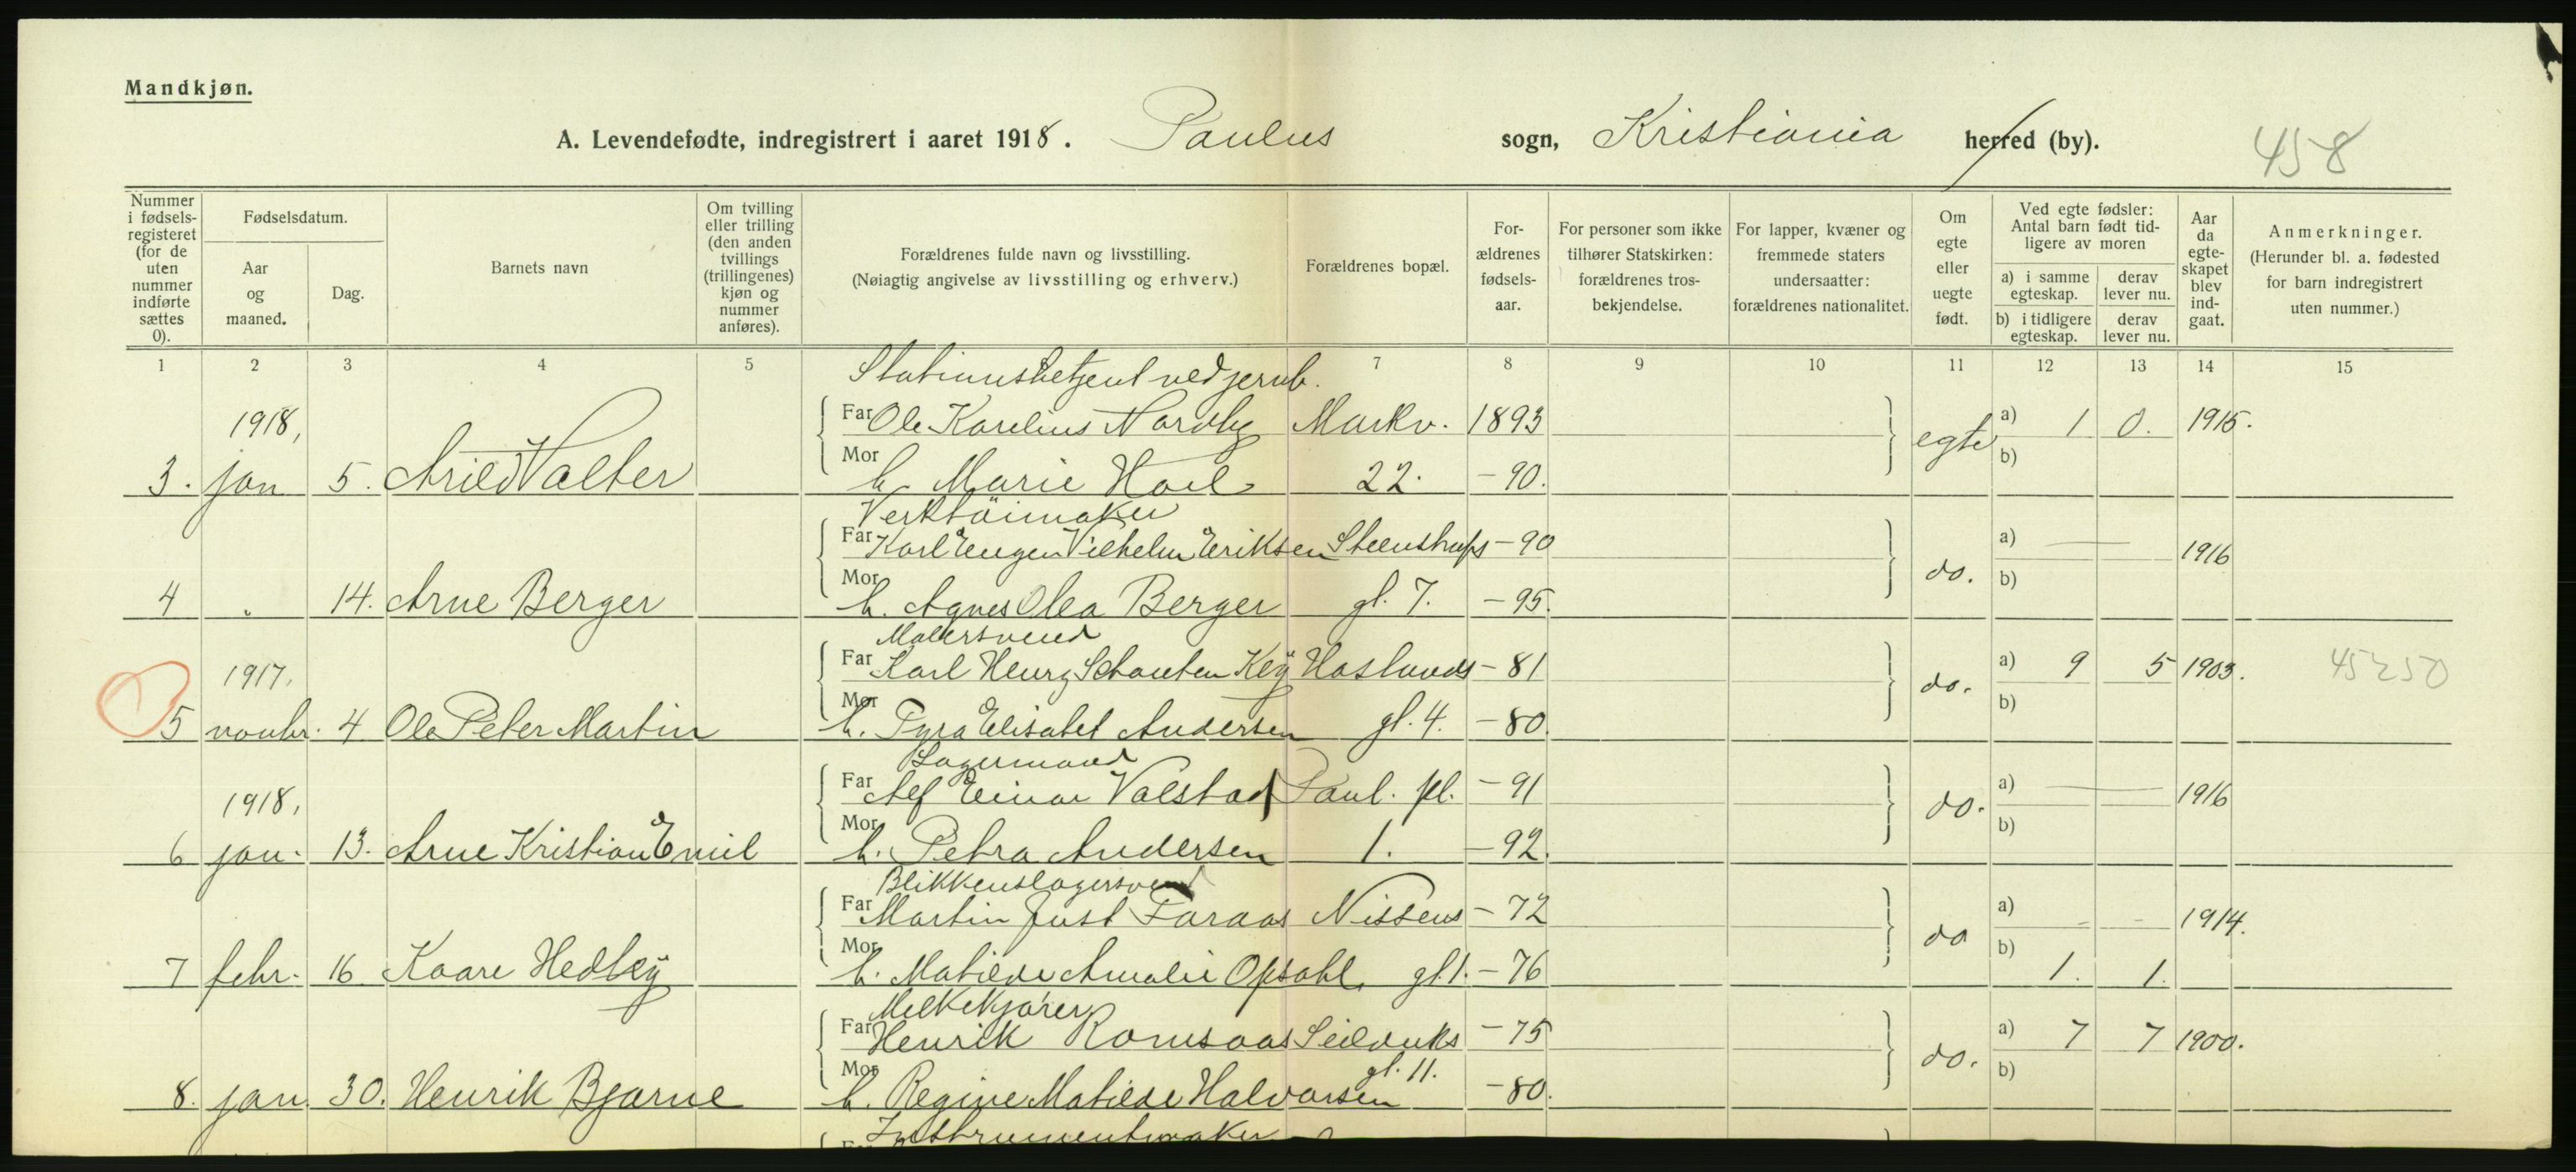 Mandkjøn.
A. Levendefødte, indregistrert i aaret 1918. Paulus sogn, Kristiania herred (by). 458
Nummer i fødsels-registeret (for de uten nummer indførte sættes 0).
Fødselsdatum.
Aar og maaned.
Dag.
Barnets navn
Om tvilling eller trilling (den anden tvillings (trillingenes) kjøn og nummer anføres).
Forældrenes fulde navn og livsstilling.
(Nøiagtig angivelse av livsstilling og erhverv.)
Forældrenes bopæl.
For-ældrenes fødsels-aar.
For personer som ikke tilhører Statskirken: forældrenes tros-bekjendelse.
For lapper, kvæner og fremmede staters undersaatter: forældrenes nationalitet.
Om egte eller uegte født.
Ved egte fødsler: Antal barn født tid-ligere av moren
a) i samme egteskap.
derav lever nu.
b) i tidligere egteskap.
derav lever nu.
Aar da egte-skapet blev ind-gaat.
Anmerkninger.
(Herunder bl. a. fødested for barn indregistrert uten nummer.)
1 2 3 4 5 7 8 9 10 11 12 13 14 15
Stationsbetjent ved jernb.
1918, Far Ole Karelius Nordby Markv. 1893 egte a) 1 0. 1915.
3. jan 5. Arild Valter Mor h. Marie Hoel 22. -90. b)
Verktöimaker
Far Karl Eugen Vilhelm Eriksen Steenstrups -90 do. a) — — 1916
4 " 14. Arne Berger Mor h. Agnes Olea Berger gt. 7. -95. b)
Malersvend
1917. Far Karl Henry Schouten Keÿ Haslunds -81 do. a) 9 5 1903. 45250
5 novbr. 4 Ole Peter Martin Mor h. Tyra Elisabet Andersen gt. 4. -80. b)
Lagermand
1918, Far Alf Einar Valstad Paul. pl. -91 do. a) — — 1916
6 jan. 13. Arne Kristian Emil Mor h. Petra Andersen 1. -92. b)
Blikkenslagersvend
Far Martin Just Faraas Nissens -72 do a) - - 1914.
7 febr. 16. Kaare Hedley Mor h. Matilde Amalie Opsahl gt 1. -76 b) 1. 1.
Melkekjörer
Far Henrik Romsaas Seilduks -75 do. a) 7 7 1900.
8. jan. 30. Henrik Bjarne Mor h. Regine Matilde Halvorsen gt. 11. -80. b)
Instrumentmaker